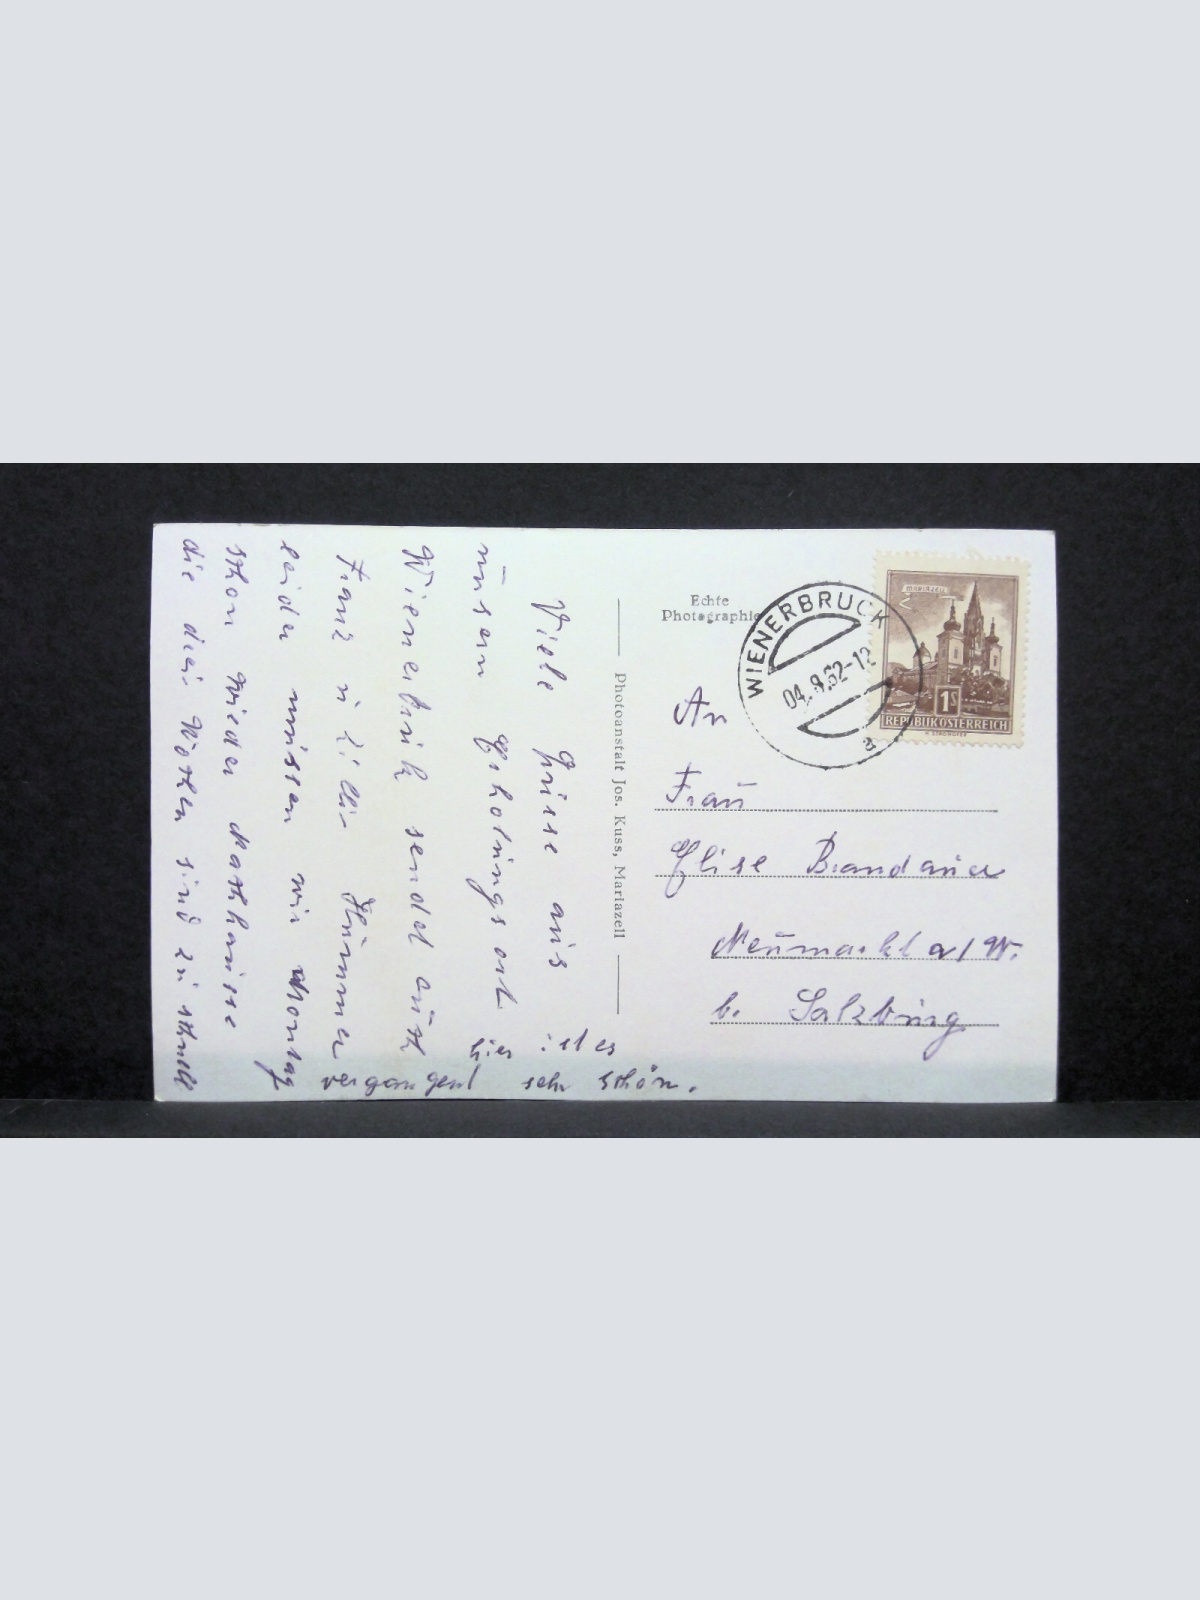 Viele Grüsse aus
unsern Erholungsort
Wienerbruck sendet auch
Franz u.
leider müssen wir Montag
schon wieder nach hause
die drei Wochen sind zu schnell
vergangen! sehr schön.
hier ist es
Photoanstalt Jos. Kuss, Mariazell
Echte
Photographie
WIENERBRUCK
04.8.62-12
a
MARIAZELL
1S
REPUBLIK ÖSTERREICH
An
Frau
Elise Brandauer
Neumarkt a/W.
b. Salzburg